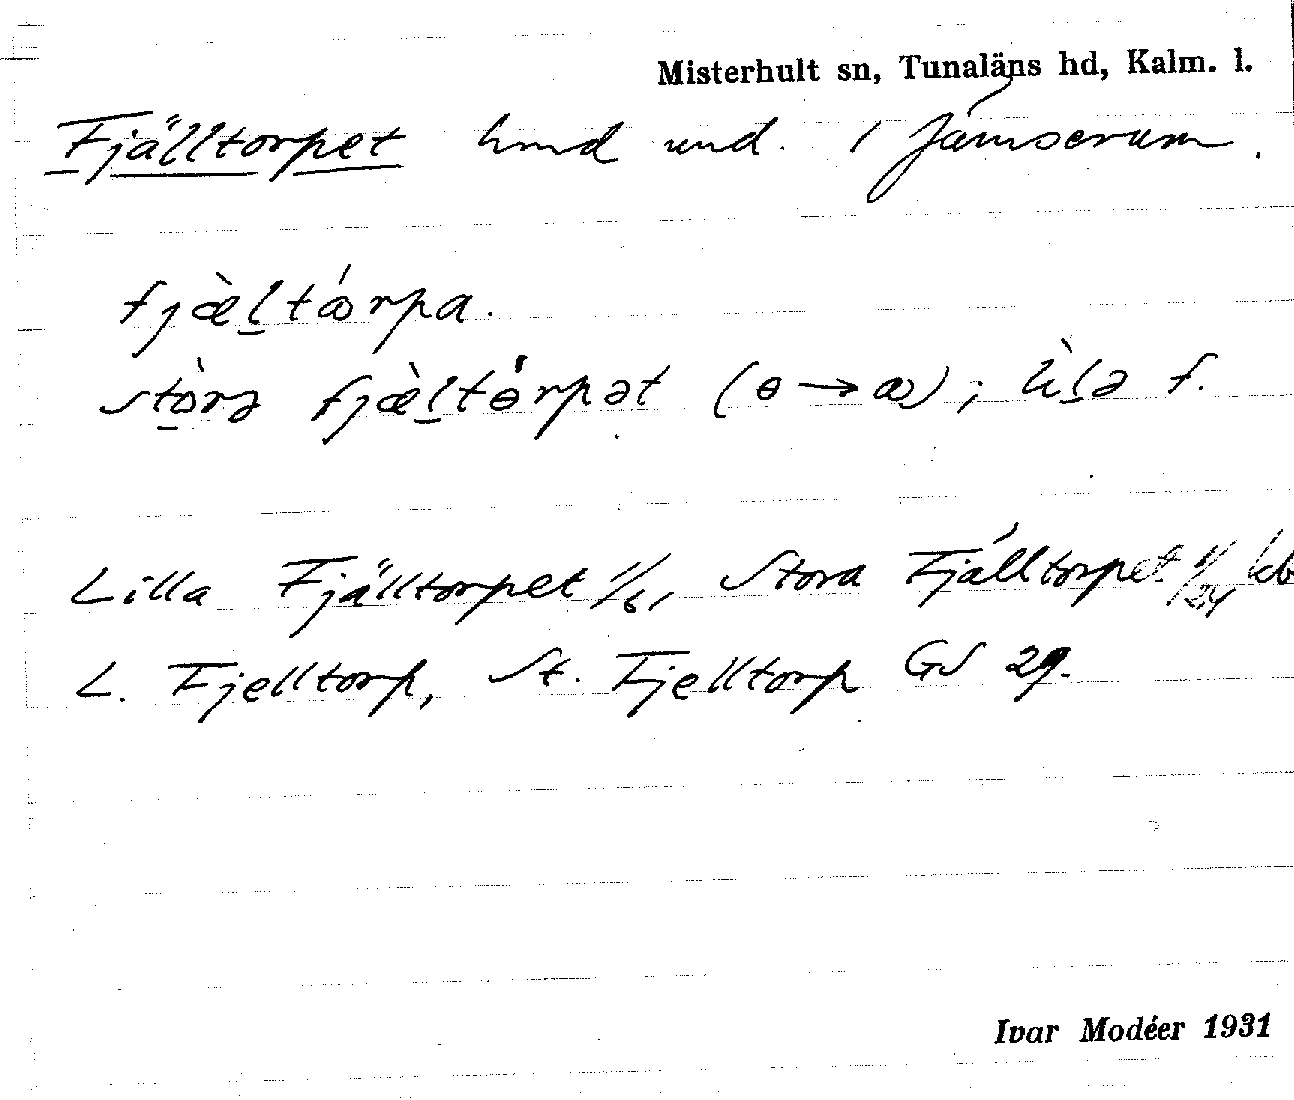 Misterhult sn, Tunaläns hd, Kalm. l.
Fjälltorpet hmd und. 1 Jämserum.
fjæ̀l̲tǿrpa.
stò̲rə fjæ̀l̲tɵ́rpət (ɵ → ꝏ); lìl̲ə f.
Lilla Fjälltorpet 1/6, Stora Fjälltorpet 1/24 kb
L. Fjelltorp, St. Fjelltorp GS 29.
Ivar Modéer 1931